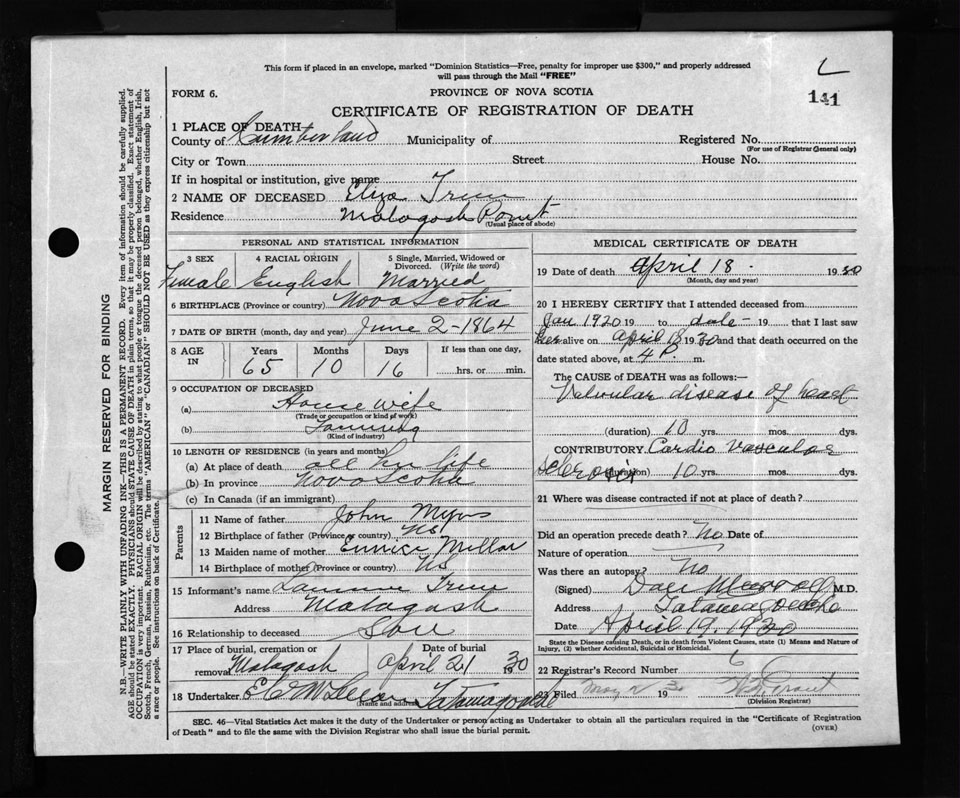 This form if placed in an envelope, marked "Dominion Statistics—Free, penalty for improper use $300," and properly addressed
will pass through the Mail "FREE"
L
FORM 6.
PROVINCE OF NOVA SCOTIA
141
CERTIFICATE OF REGISTRATION OF DEATH
1 PLACE OF DEATH
County of Cumberland Municipality of Registered No.
(For use of Registrar General only)
City or Town Street House No.
If in hospital or institution, give name
2 NAME OF DECEASED Eliza
Residence Malagash Point
(Usual place of abode)
PERSONAL AND STATISTICAL INFORMATION
3 SEX 4 RACIAL ORIGIN 5 Single, Married, Widowed or
Divorced. (Write the word)
Female English Married
6 BIRTHPLACE (Province or country) Nova Scotia
7 DATE OF BIRTH (month, day and year) June 2-1864
8 AGE IN Years Months Days If less than one day,
65 10 16 hrs. or min.
9 OCCUPATION OF DECEASED
(a) House wife
(Trade or occupation or kind of work)
(b)
(Kind of industry)
10 LENGTH OF RESIDENCE (in years and months)
(a) At place of death all her life
(b) In province Nova Scotia
(c) In Canada (if an immigrant)
Parents
11 Name of father John Myers
12 Birthplace of father (Province or country) NS
13 Maiden name of mother Eunice Millar
14 Birthplace of mother (Province or country) NS
15 Informant's name
Address Malagash
16 Relationship to deceased Son
17 Place of burial, cremation or Date of burial
removal Malagash April 21 1930
18 Undertaker Tatamagouche
(Name and address)
MEDICAL CERTIFICATE OF DEATH
19 Date of death April 18. 1930
(Month, day and year)
20 I HEREBY CERTIFY that I attended deceased from
Jan 1920 19 to date- 19 that I last saw
her alive on April 18 1930 and that death occurred on the
date stated above, at 4 P. m.
The CAUSE OF DEATH was as follows:—
Valvular disease of heart
(duration) 10 yrs. mos. dys.
CONTRIBUTORY Cardio Vascular
Sclerosis (duration) 10 yrs. mos. dys.
21 Where was disease contracted if not at place of death?
Did an operation precede death? No Date of
Nature of operation
Was there an autopsy? No
(Signed) Dan M.D.
Address Tatamagouche
Date April 19. 1930
State the Disease causing Death, or in death from Violent Causes, state (1) Means and Nature of
Injury, (2) whether Accidental, Suicidal or Homicidal.
22 Registrar's Record Number 6
23 Filed May 19
(Division Registrar)
SEC. 46—Vital Statistics Act makes it the duty of the Undertaker or person acting as Undertaker to obtain all the particulars required in the "Certificate of Registration
of Death" and to file the same with the Division Registrar who shall issue the burial permit.
(OVER)
MARGIN RESERVED FOR BINDING
N.B.—WRITE PLAINLY WITH UNFADING INK—THIS IS A PERMANENT RECORD. Every item of information should be carefully supplied.
AGE should be stated EXACTLY. PHYSICIANS should STATE CAUSE OF DEATH in plain terms, so that it may be properly classified. Exact statement of
OCCUPATION is very important. RACIAL ORIGIN will be described by stating to what people or tongue the deceased person belonged, whether English, Irish,
Scotch, French, German, Russian, Ruthenian, etc. The terms "AMERICAN" or "CANADIAN" SHOULD NOT BE USED as they express citizenship but not
a race or people. See instructions on back of Certificate.